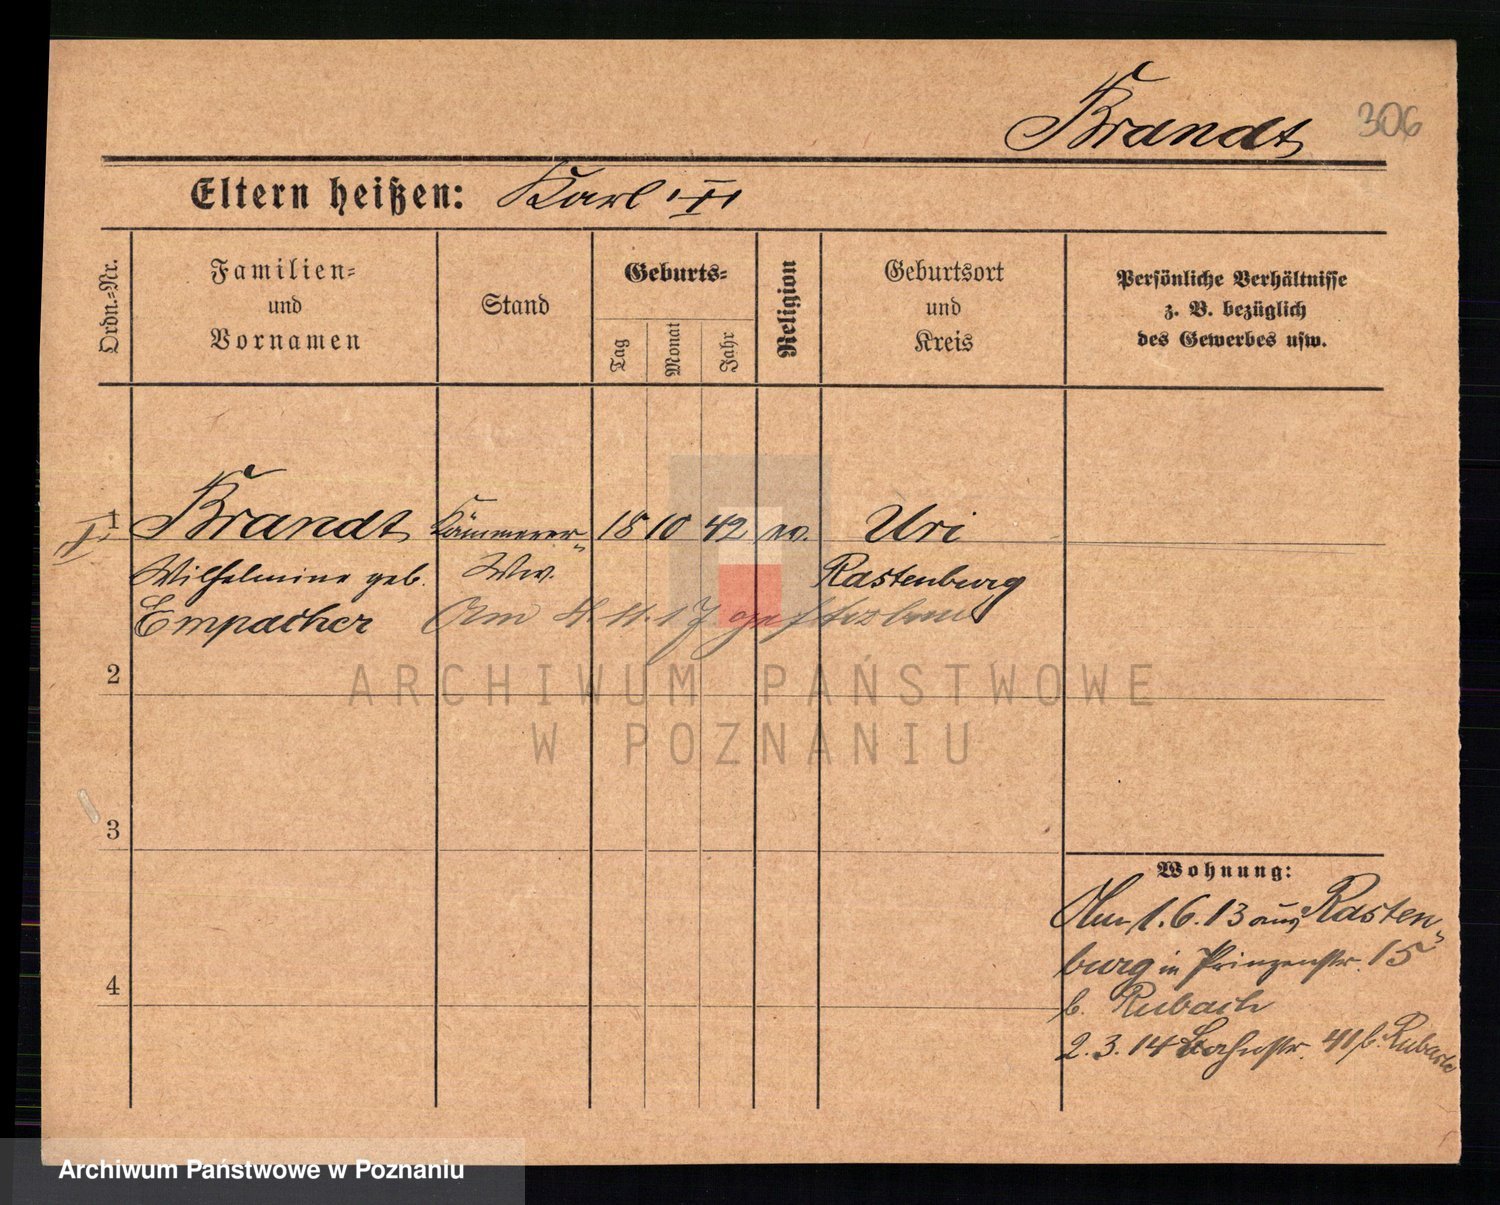 Brandt 306
Eltern heißen: Karl III
Ordn.-Nr.
Familien-
und
Vornamen
Stand
Geburts-
Tag
Monat
Jahr
Religion
Geburtsort
und
Kreis
Persönliche Verhältnisse
z. B. bezüglich
des Gewerbes usw.
1 Brandt Kämmerer- 18 10 42 ev. Uri
Wilhelmine geb. Ww. Rastenburg
Empacher Am 4.11.17 gestorben
2
3
4
Wohnung:
Am 1.6.13 aus Rasten-
burg in Prinzenstr. 15
b. Rubach
2.3.14 Bahnstr. 41 b. Rubach
ARCHIWUM PAŃSTWOWE
W POZNANIU
Archiwum Państwowe w Poznaniu